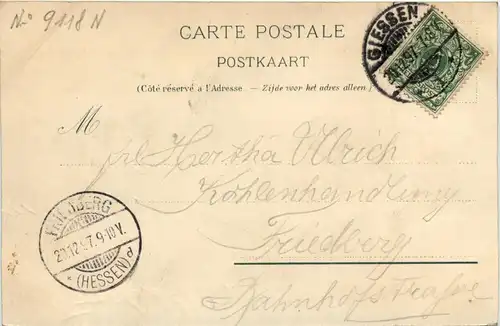 No 9118 N
CARTE POSTALE
POSTKAART
(Côté réservé à l'Adresse — Zijde voor het adres alleen)
GIESSEN
M
Hertha Ulrich
Kohlenhandlung
Friedberg
Bahnhofstraße
FRIEDBERG
9-10V.
(HESSEN)